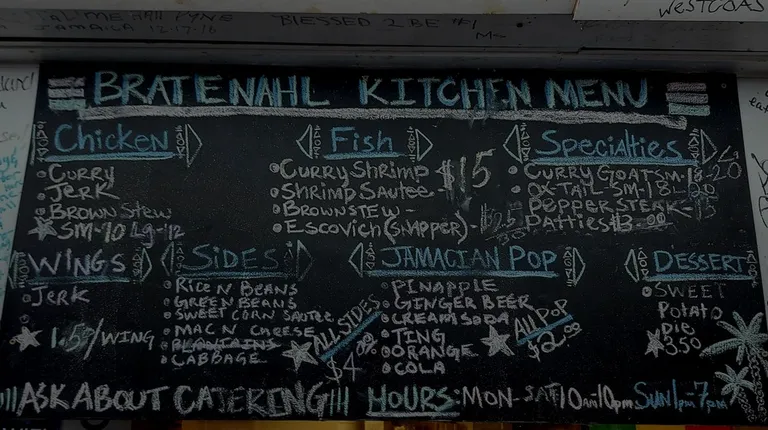 BLESSED 2 BE #1
JAMAICA 12-17-16
WESTCOAS
BRATENAHL KITCHEN MENU
Chicken
CURRY
JERK
BROWN STEW
SM-10 Lg-12
Fish
CURRY SHRIMP
SHRIMP SAUTEE
$15
BROWNSTEW -
ESCOVICH (SNAPPER)
Specialties
CURRY GOAT SM-18-20
OX-TAIL-SM-18-20
PEPPER STEAK
PATTIES $3.00
WINGS
JERK
1.50/WING
SIDES
RICE N BEANS
GREEN BEANS
SWEET CORN SAUTEE
MAC N CHEESE
PLANTAINS
CABBAGE
ALL SIDES
$4.00
JAMACIAN POP
PINAPPLE
GINGER BEER
CREAM SODA
TING
ORANGE
COLA
ALL POP
$2.00
DESSERT
SWEET
POTATO
PIE
3.50
ASK ABOUT CATERING HOURS: MON-SAT 10am-10pm SUN 1pm-7pm